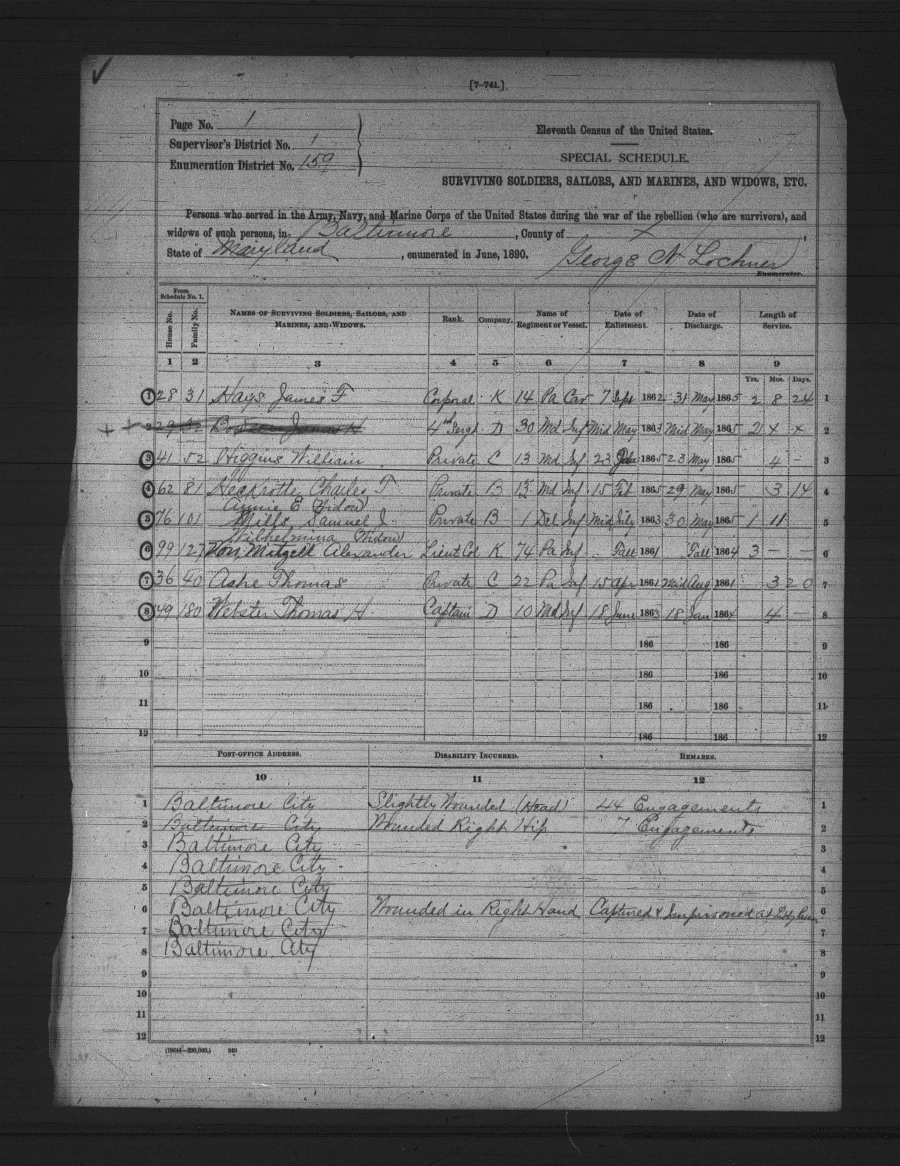 ✓
[7-741.]
Page No. 1
Supervisor's District No. 1
Enumeration District No. 159
Eleventh Census of the United States.
SPECIAL SCHEDULE.
SURVIVING SOLDIERS, SAILORS, AND MARINES, AND WIDOWS, ETC.
Persons who served in the Army, Navy, and Marine Corps of the United States during the war of the rebellion (who are survivors), and
widows of such persons, in Baltimore, County of x,
State of Maryland, enumerated in June, 1890. George N Lochner
Enumerator.
From Schedule No. 1.
House No. Family No. NAMES OF SURVIVING SOLDIERS, SAILORS, AND MARINES, AND WIDOWS. Rank. Company. Name of Regiment or Vessel. Date of Enlistment. Date of Discharge. Length of Service.
1 2 3 4 5 6 7 8 9
Yrs. Mos. Days.
1 28 31 Hays James F Corporal K 14 Pa Cav 7 Sept 1862 31 May 1865 2 8 24 1
2 29 James H 4th Sergt D 30 Md Inf Mid May 1863 Mid May 1865 2 x x 2
3 41 52 Higgins William Private C 13 Md Inf 23 1865 23 May 1865 4 – 3
4 62 81 Charles T Private B 13 Md Inf 15 Feb 1865 29 May 1865 3 14 4
Annie E (Widow)
5 76 101 Mills, Samuel J. Private B 1 Del Inf Mid July 1863 30 May 1865 1 11 5
Wilhelmina (Widow)
6 99 127 Von Mitzell Alexander Lieut Col K 74 Pa Inf Fall 1861 Fall 1864 3 – 6
7 36 40 Ashe Thomas Private C 22 Pa Inf 15 Apr 1861 Mid Aug 1861 3 20 7
8 49 180 Webster Thomas H Captain D 10 Md Inf 18 June 1863 18 Jan 1864 4 – 8
9 186 186 9
10 186 186 10
11 186 186 11
12 186 186 12
POST-OFFICE ADDRESS. DISABILITY INCURRED. REMARKS.
10 11 12
1 Baltimore City Slightly Wounded (Head) 44 Engagements 1
2 Baltimore City Wounded Right Hip 7 Engagements 2
3 Baltimore City 3
4 Baltimore City 4
5 Baltimore City 5
6 Baltimore City Wounded in Right Hand Captured & Imprisoned at Libby 6
7 Baltimore City 7
8 Baltimore City 8
9 9
10 10
11 11
12 12